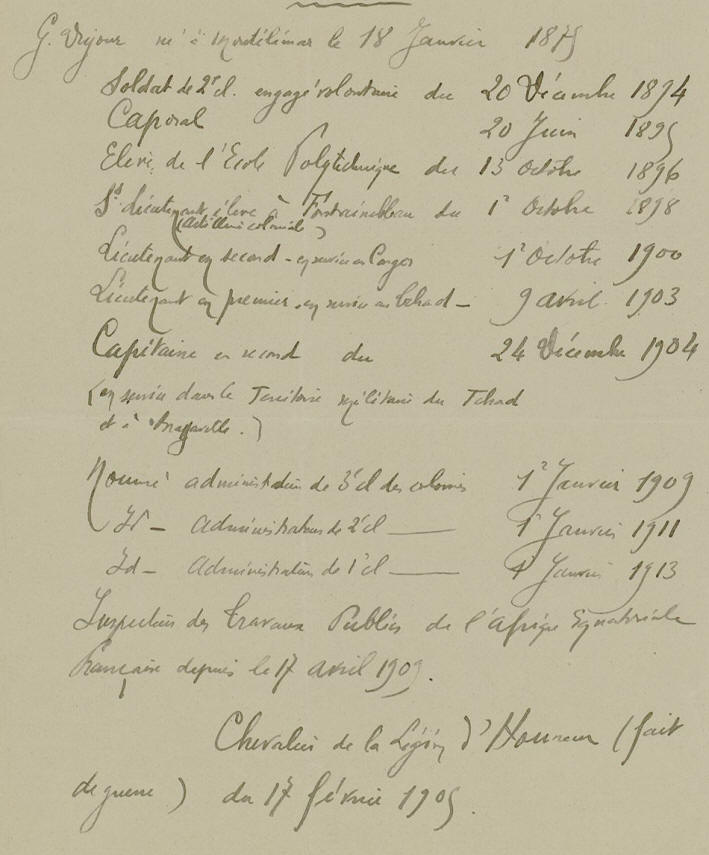 G. né à Montélimar le 18 Janvier 1875
Soldat de 2e cl. engagé volontaire du 20 Décembre 1894
Caporal 20 Juin 1895
Elève de l'Ecole Polytechnique du 13 Octobre 1896
St. Lieutenant élève à Fontainebleau du 1er Octobre 1898
(artillerie coloniale)
Lieutenant en second - en service au Congo 1er Octobre 1900
Lieutenant en premier - en service au Tchad - 9 avril 1903
Capitaine en second du 24 Décembre 1904
(en service dans le Territoire militaire du Tchad
et à Brazzaville.)
Nommé administrateur de 3e cl des colonies 1er Janvier 1909
Id - Administrateur de 2e cl — 1er Janvier 1911
Id - Administrateur de 1e cl — 1er Janvier 1913
Inspecteur des Travaux Publics de l'Afrique Equatoriale
Française depuis le 17 avril 1909.
Chevalier de la Légion d'Honneur (fait
de guerre) du 17 février 1905.